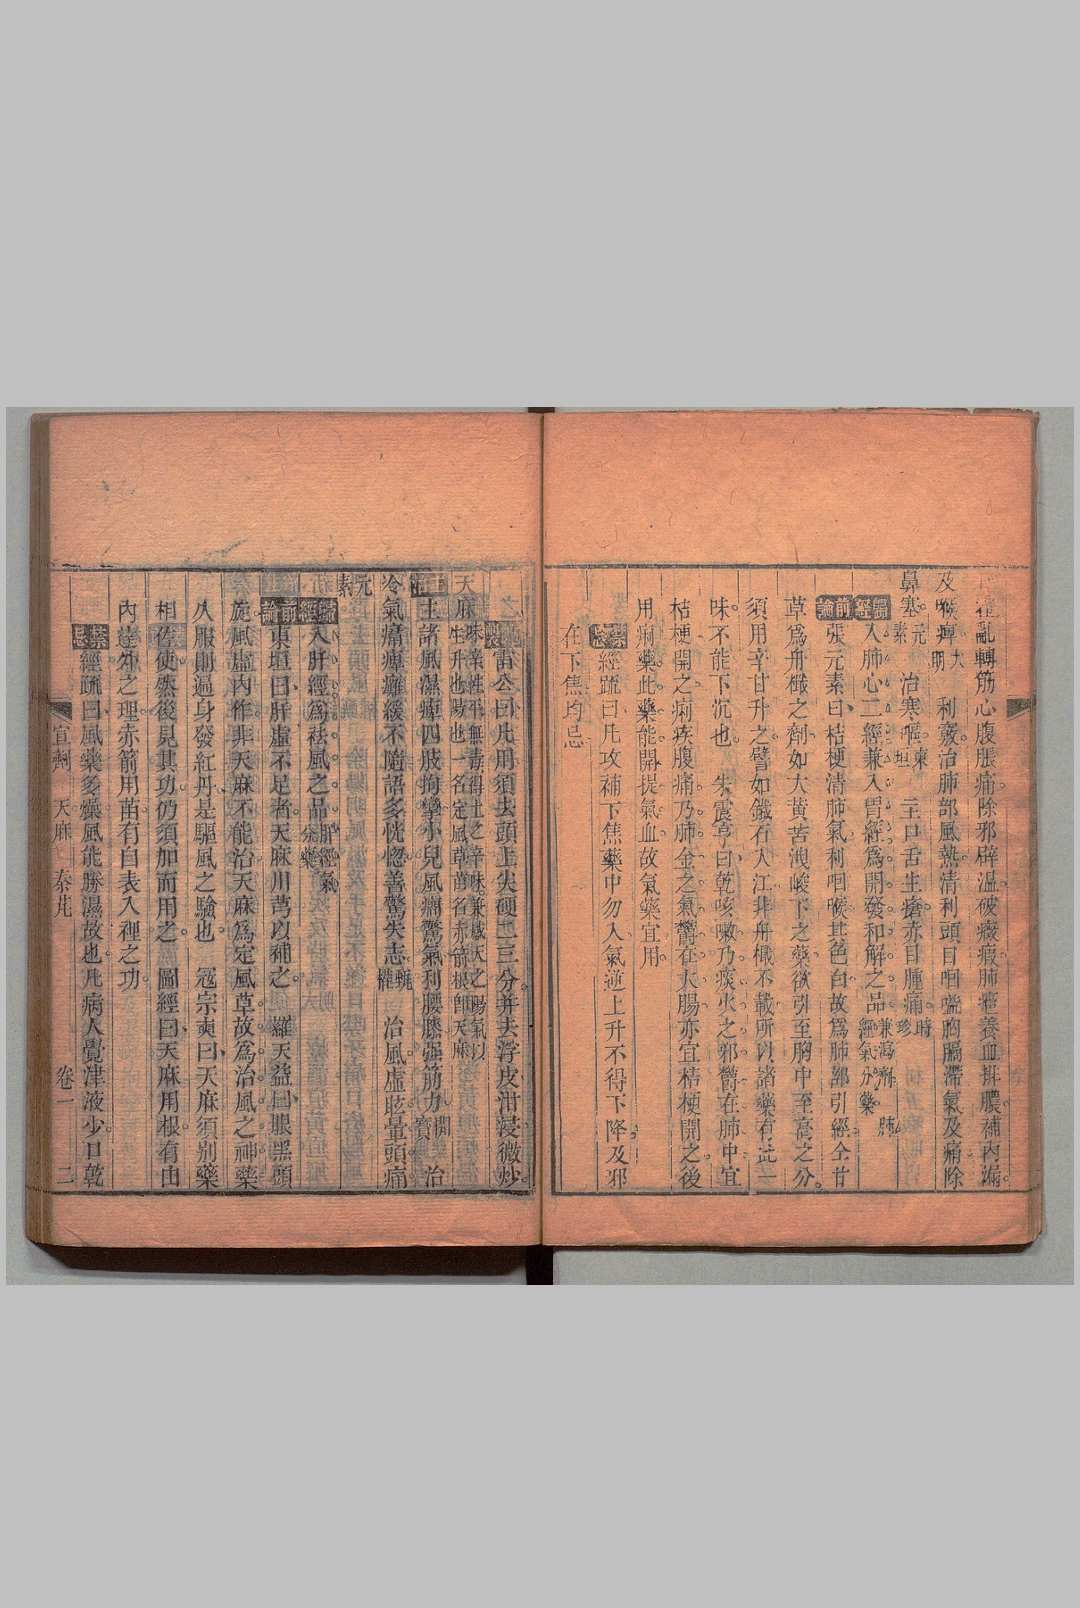 霍亂轉筋心腹脹痛除邪辟溫破癥瘕肺癰養血排膿補內漏
及喉痺大明 利竅治肺部風熱清利頭目咽嗌胸膈滯氣及痛除
鼻塞元素 治寒嘔東垣 主口舌生瘡赤目腫痛時珍
歸經入肺心二經兼入胃經為開發和解之品兼瀉劑肺經氣分藥
前論張元素曰桔梗清肺氣利咽喉其色白故為肺部引經仝甘
草為舟檝之劑如大黃苦洩峻下之藥欲引至胸中至高之分
須用辛甘升之譬如鐵石入江非舟檝不載所以諸藥有此一
味不能下沉也 朱震亨曰乾咳嗽乃痰火之邪鬱在肺中宜
桔梗開之痢疾腹痛乃肺金之氣鬱在大腸亦宜桔梗開之後
用痢藥此藥能開提氣血故氣藥宜用
禁忌經疏曰凡攻補下焦藥中勿入氣逆上升不得下降及邪
在下焦均忌
雷公曰凡用須去頭上尖硬二三分并去浮皮泔浸微炒
天麻味辛性平無毒得土之辛味兼感天之陽氣以生升也陽也一名定風草苗名赤箭根即天麻
主治主諸風濕痺四肢拘攣小兒風癇驚氣利腰膝强筋力開寶 治
冷氣𤸷痺癱緩不隨語多恍惚善驚失志甄權 治風虛眩暈頭痛
元素
歸經入肝經為祛風之品肝經氣分藥
前論東垣曰肝虛不足者天麻川芎以補之 羅天益曰眼黑頭
旋風虛內作非天麻不能治天麻為定風草故為治風之神藥
久服則遍身發紅丹是驅風之驗也 冦宗奭曰天麻須别藥
相佐使然後見其功仍須加而用之 圖經曰天麻用根有由
內達外之理赤箭用苗有自表入裡之功
禁忌經疏曰風藥多燥風能勝濕故也凡病人覺津液少口乾
宣劑 天麻 秦艽 卷一 二